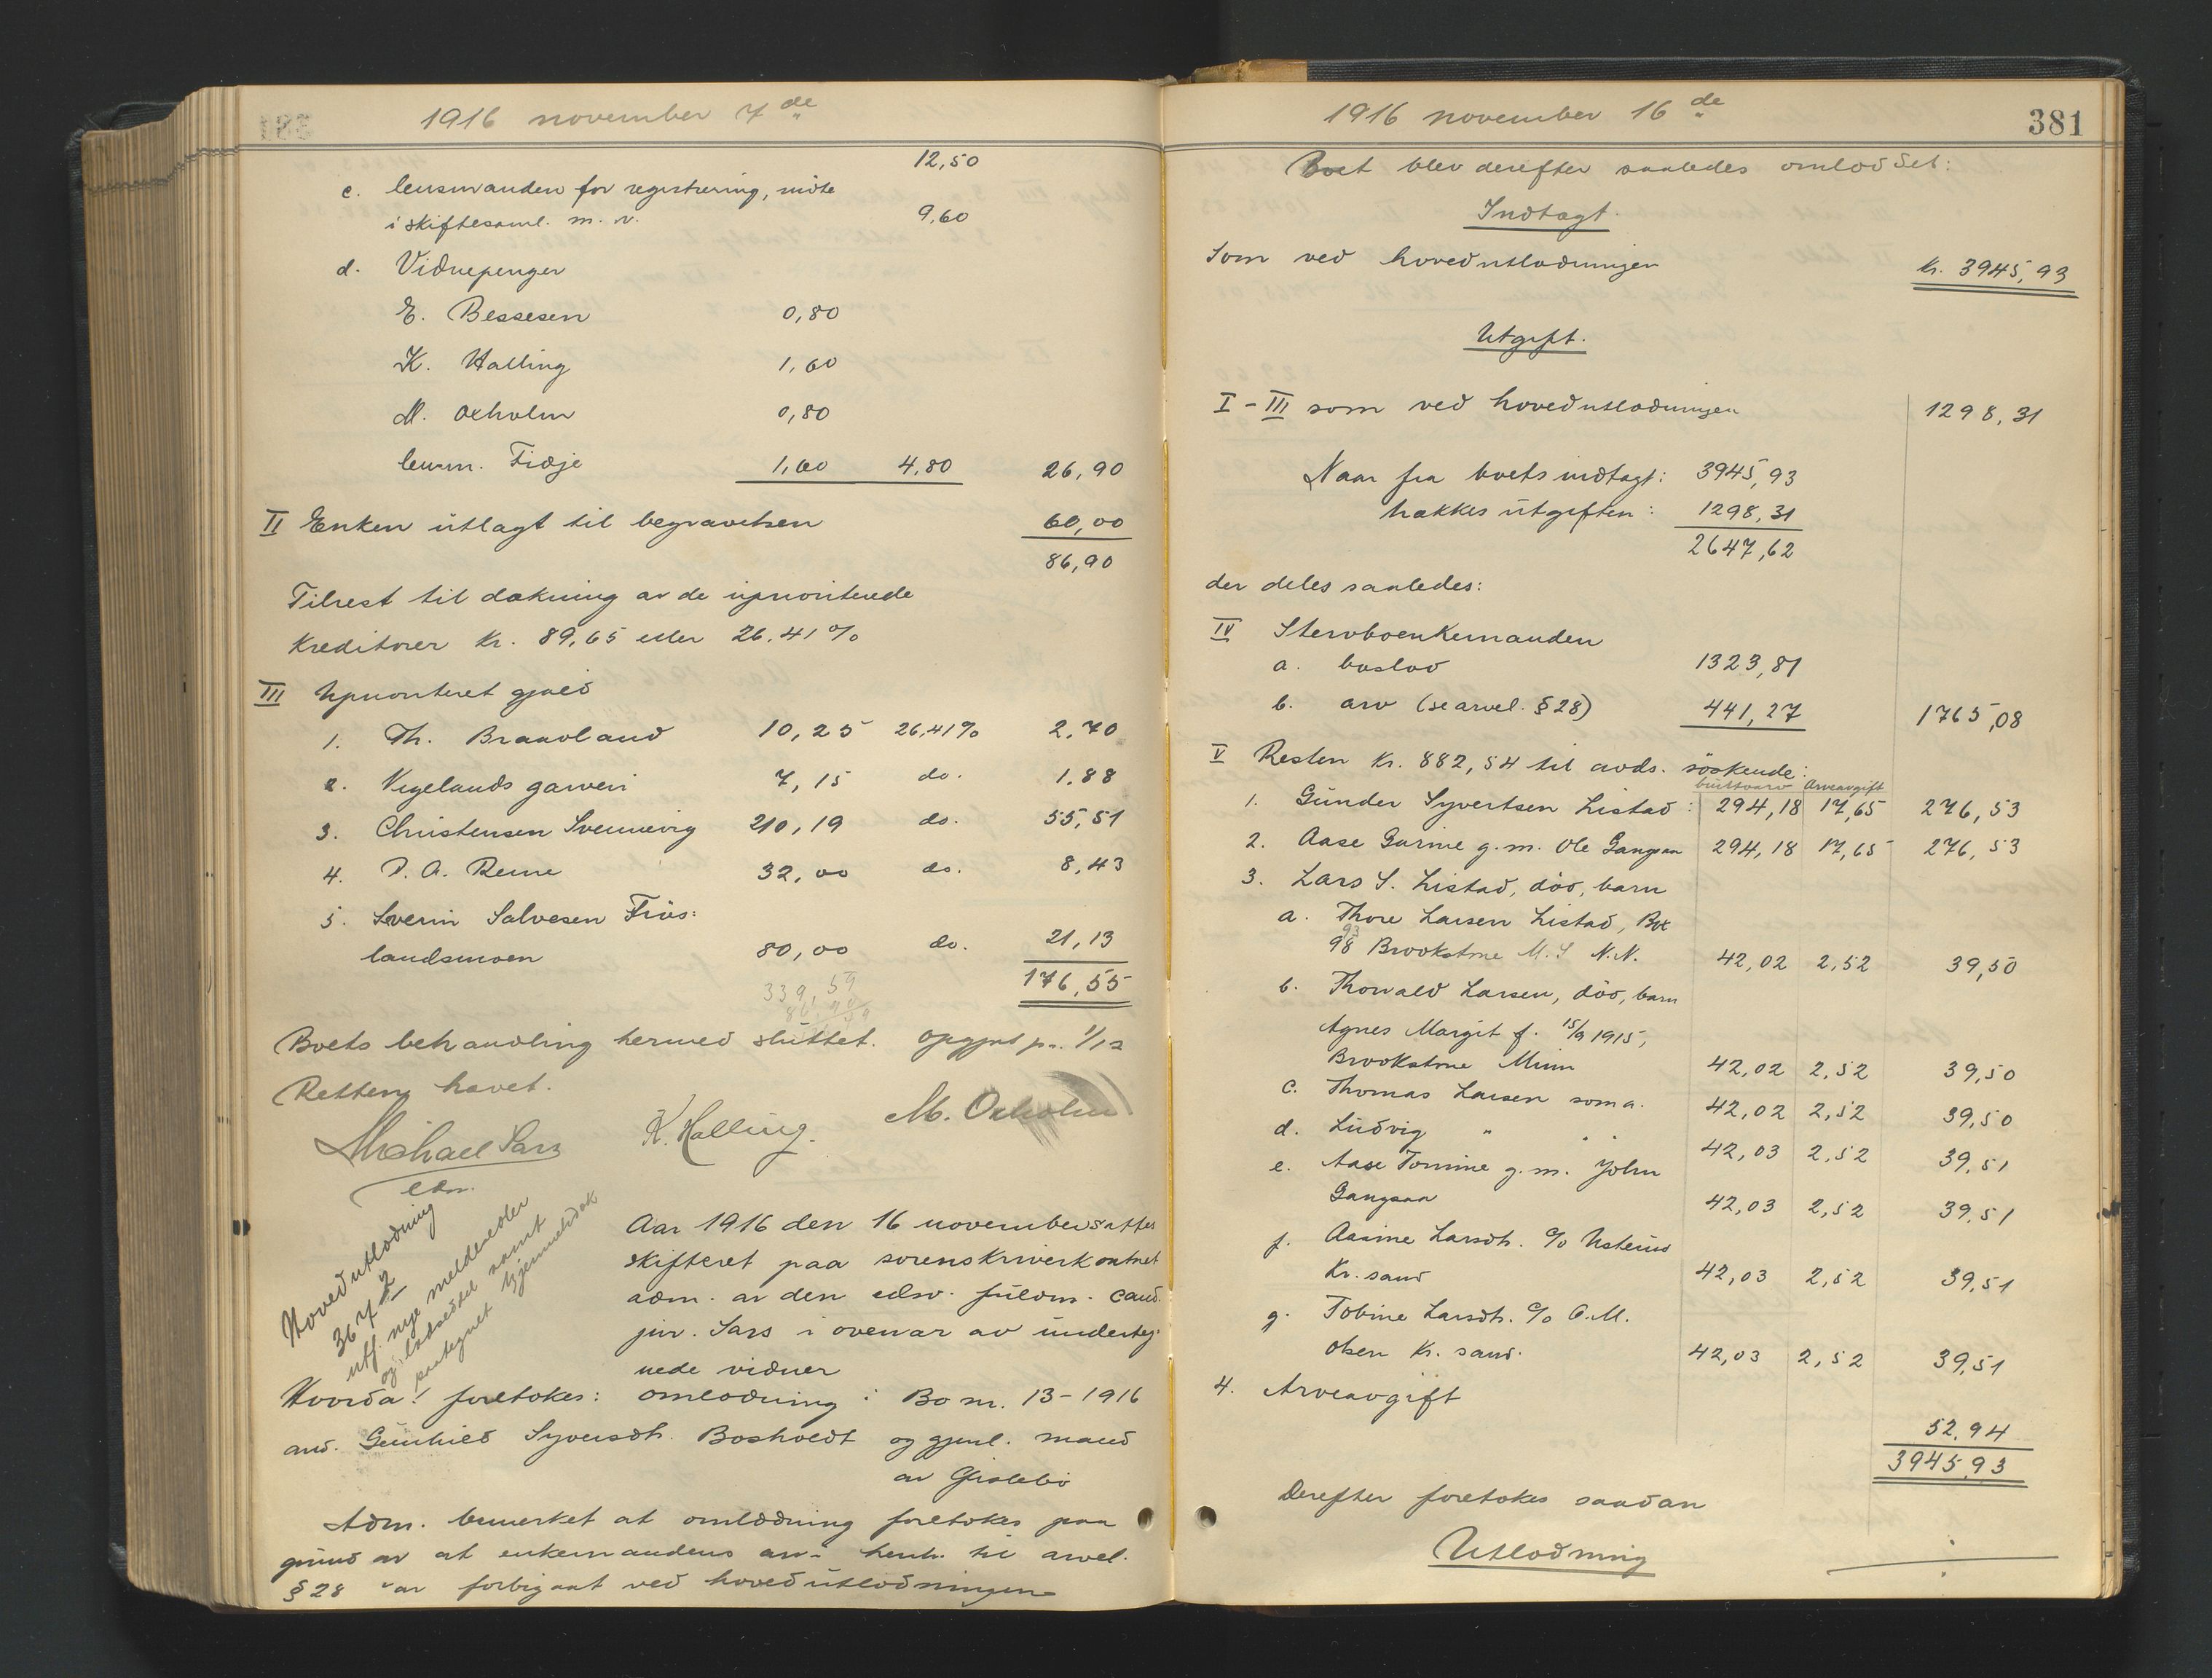 1916 november 7de
12,50
c. lensmanden for registrering, møte
i skiftesaml. m. v. 9,60
d. Vidnepenger
E. Bessesen 0,80
K. Halling 1,60
M. Oxholm 0,80
lensm. Fidje 1,60 4,80 26,90
II Enken utlagt til begravelsen 60,00
86,90
Tilrest til dækning av de uprioriterede
kreditorer kr. 89,65 eller 26.41%
III Uprioriteret gjæld
1. Th. Braavland 10,25 26,41% 2,70
2. Vigelands garveri 7,15 do. 1.88
3. Christensen Svennevig 210,19 do. 55,51
4. P. A. Reme 32,00 do. 8,43
5. Severin Salvesen Frøs-
landsmoen 80,00 do. 21,13
339,59 176,55
Boets behandling hermed sluttet. Opgjort pr. 1/12
Retten hævet.
Michael Sars K. Halling. M. Oxholm
edsv.
Hovedutlodning
367 2
utf. nye meldeseder
og lodseddel samt
paategnet hjemmelsdok
Aar 1916 den 16 november sattes
skifteret paa sorenskriverkontoret
adm. av den edsv. fuldm. cand.
jur. Sars i overvær av underteg-
nede vidner
Hvorda! foretokes: omlodning i Bo nr. 13-1916
avd. Gunhild Syversdtr. Bosholdt og gjenl. mand
av Gislebø
Adm. bemerket at omlodning foretokes paa
grund av at enkemandens arv i henh. til arvel.
§28 var forbigaat ved hovedutlodningen
1916 november 16de 381
Boet blev derefter saaledes omloddet:
Indtægt.
Som ved hovedutlodningen kr. 3945,93
Utgift.
I-III som ved hovedutlodningen 1298,31
Naar fra boets indtægt: 3945,93
trækkes utgiften: 1298,31
2647,62
der deles saaledes:
IV Stervboenkemanden
a. boslod 1323,81
b. arv (se arvel. §28) 441,27 1765,08
V Resten kr. 882,54 til avds. søskende:
bruttoarv Arveavgift
1. Gunder Syvertsen Listad: 294,18 17,65 276,53
2. Aase Gurine g.m. Ole Gangsaa 294,18 17,65 276,53
3. Lars S. Listad, død, barn
a. Thore Larsen Listad, Box
93
98 Brookstone M.S N.N. 42,02 2,52 39,50
b. Thorvald Larsen, død, barn
Agnes Margit f. 15/9 1915,
Brookstone Minn 42,02 2,52 39,50
c. Thomas Larsen som a. 42,02 2,52 39,50
d. Ludvig " " 42,03 2,52 39,51
e. Aase Tomine g.m. John
Gangsaa 42,03 2,52 39,51
f. Aasine Larsdtr. c/o Usterud
Kr.sand 42,03 2,52 39,51
g. Tobine Larsdtr. c/o O.M.
Olsen Kr.sand. 42,03 2,52 39,51
4. Arveavgift 52.94
3945,93
Derefter foretokes saadan
Utlodning